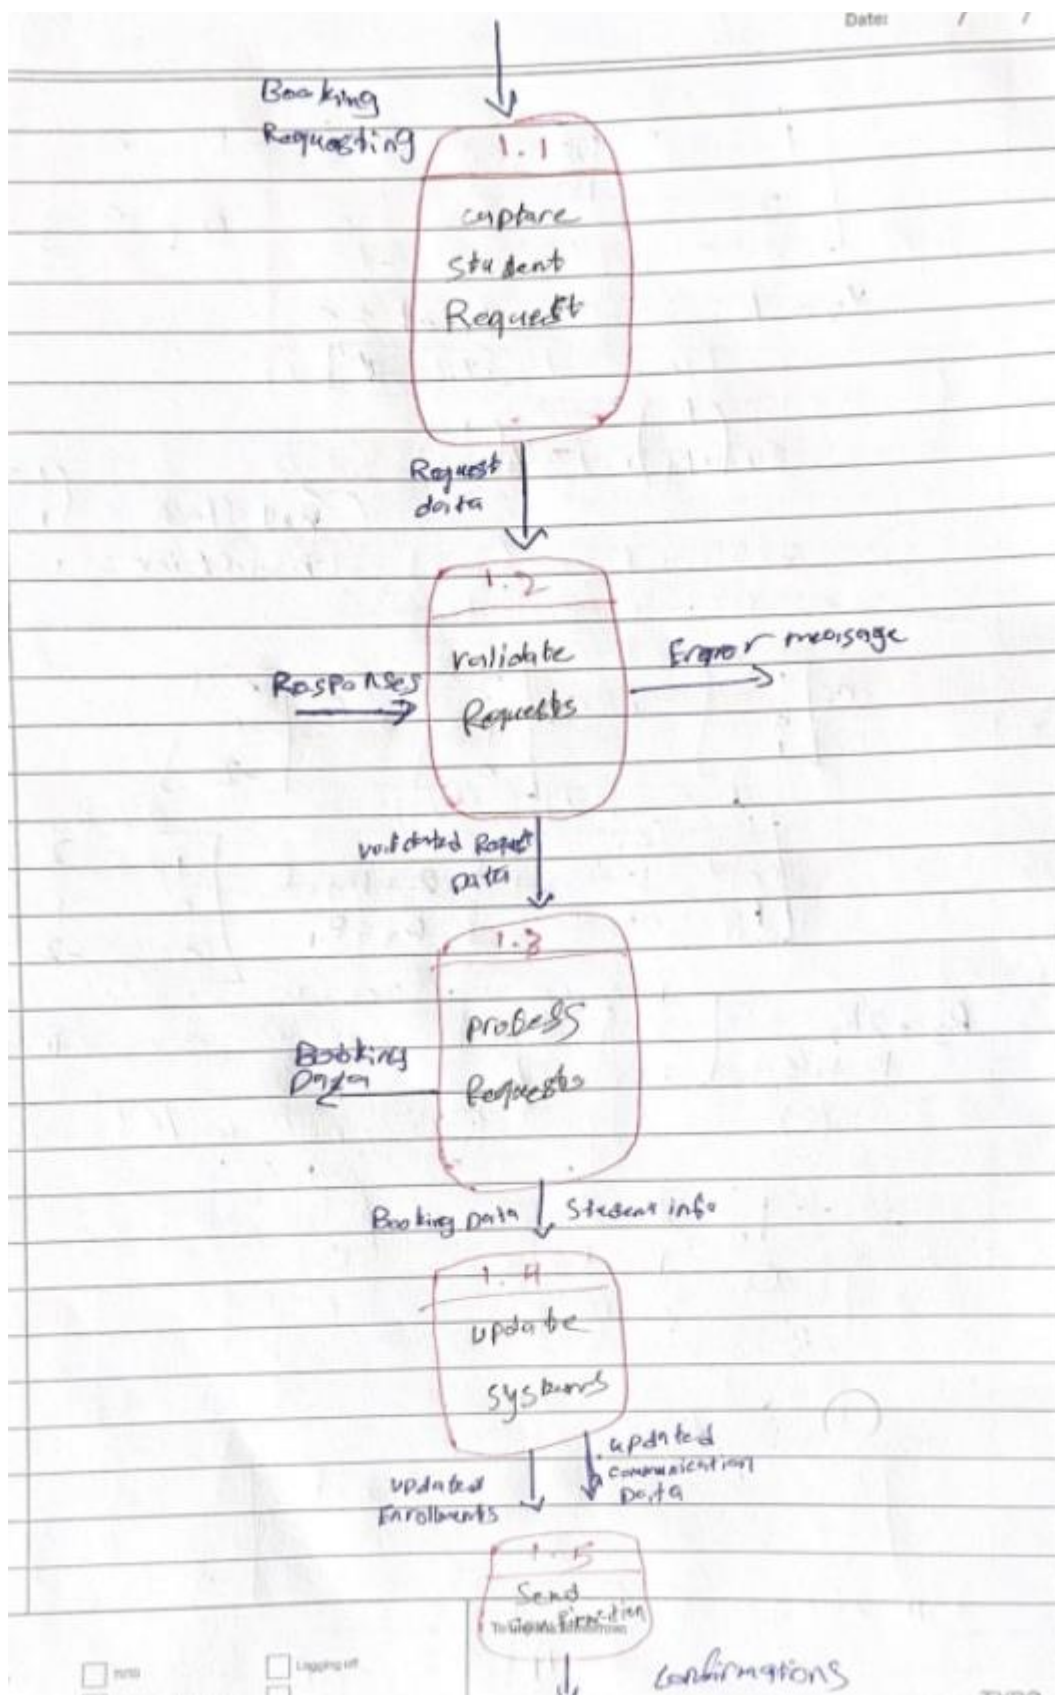 Date: / /
Booking
Requesting
1.1
capture
student
Request
Request
data
1.2
validate
Requests
Responses
Error message
validated Request
Data
1.3
process
Requests
Booking
Data
Booking Data
Student info
1.4
update
systems
updated
Enrollments
updated
communication
Data
1.5
Send
Confirmation
Confirmations
Logging off